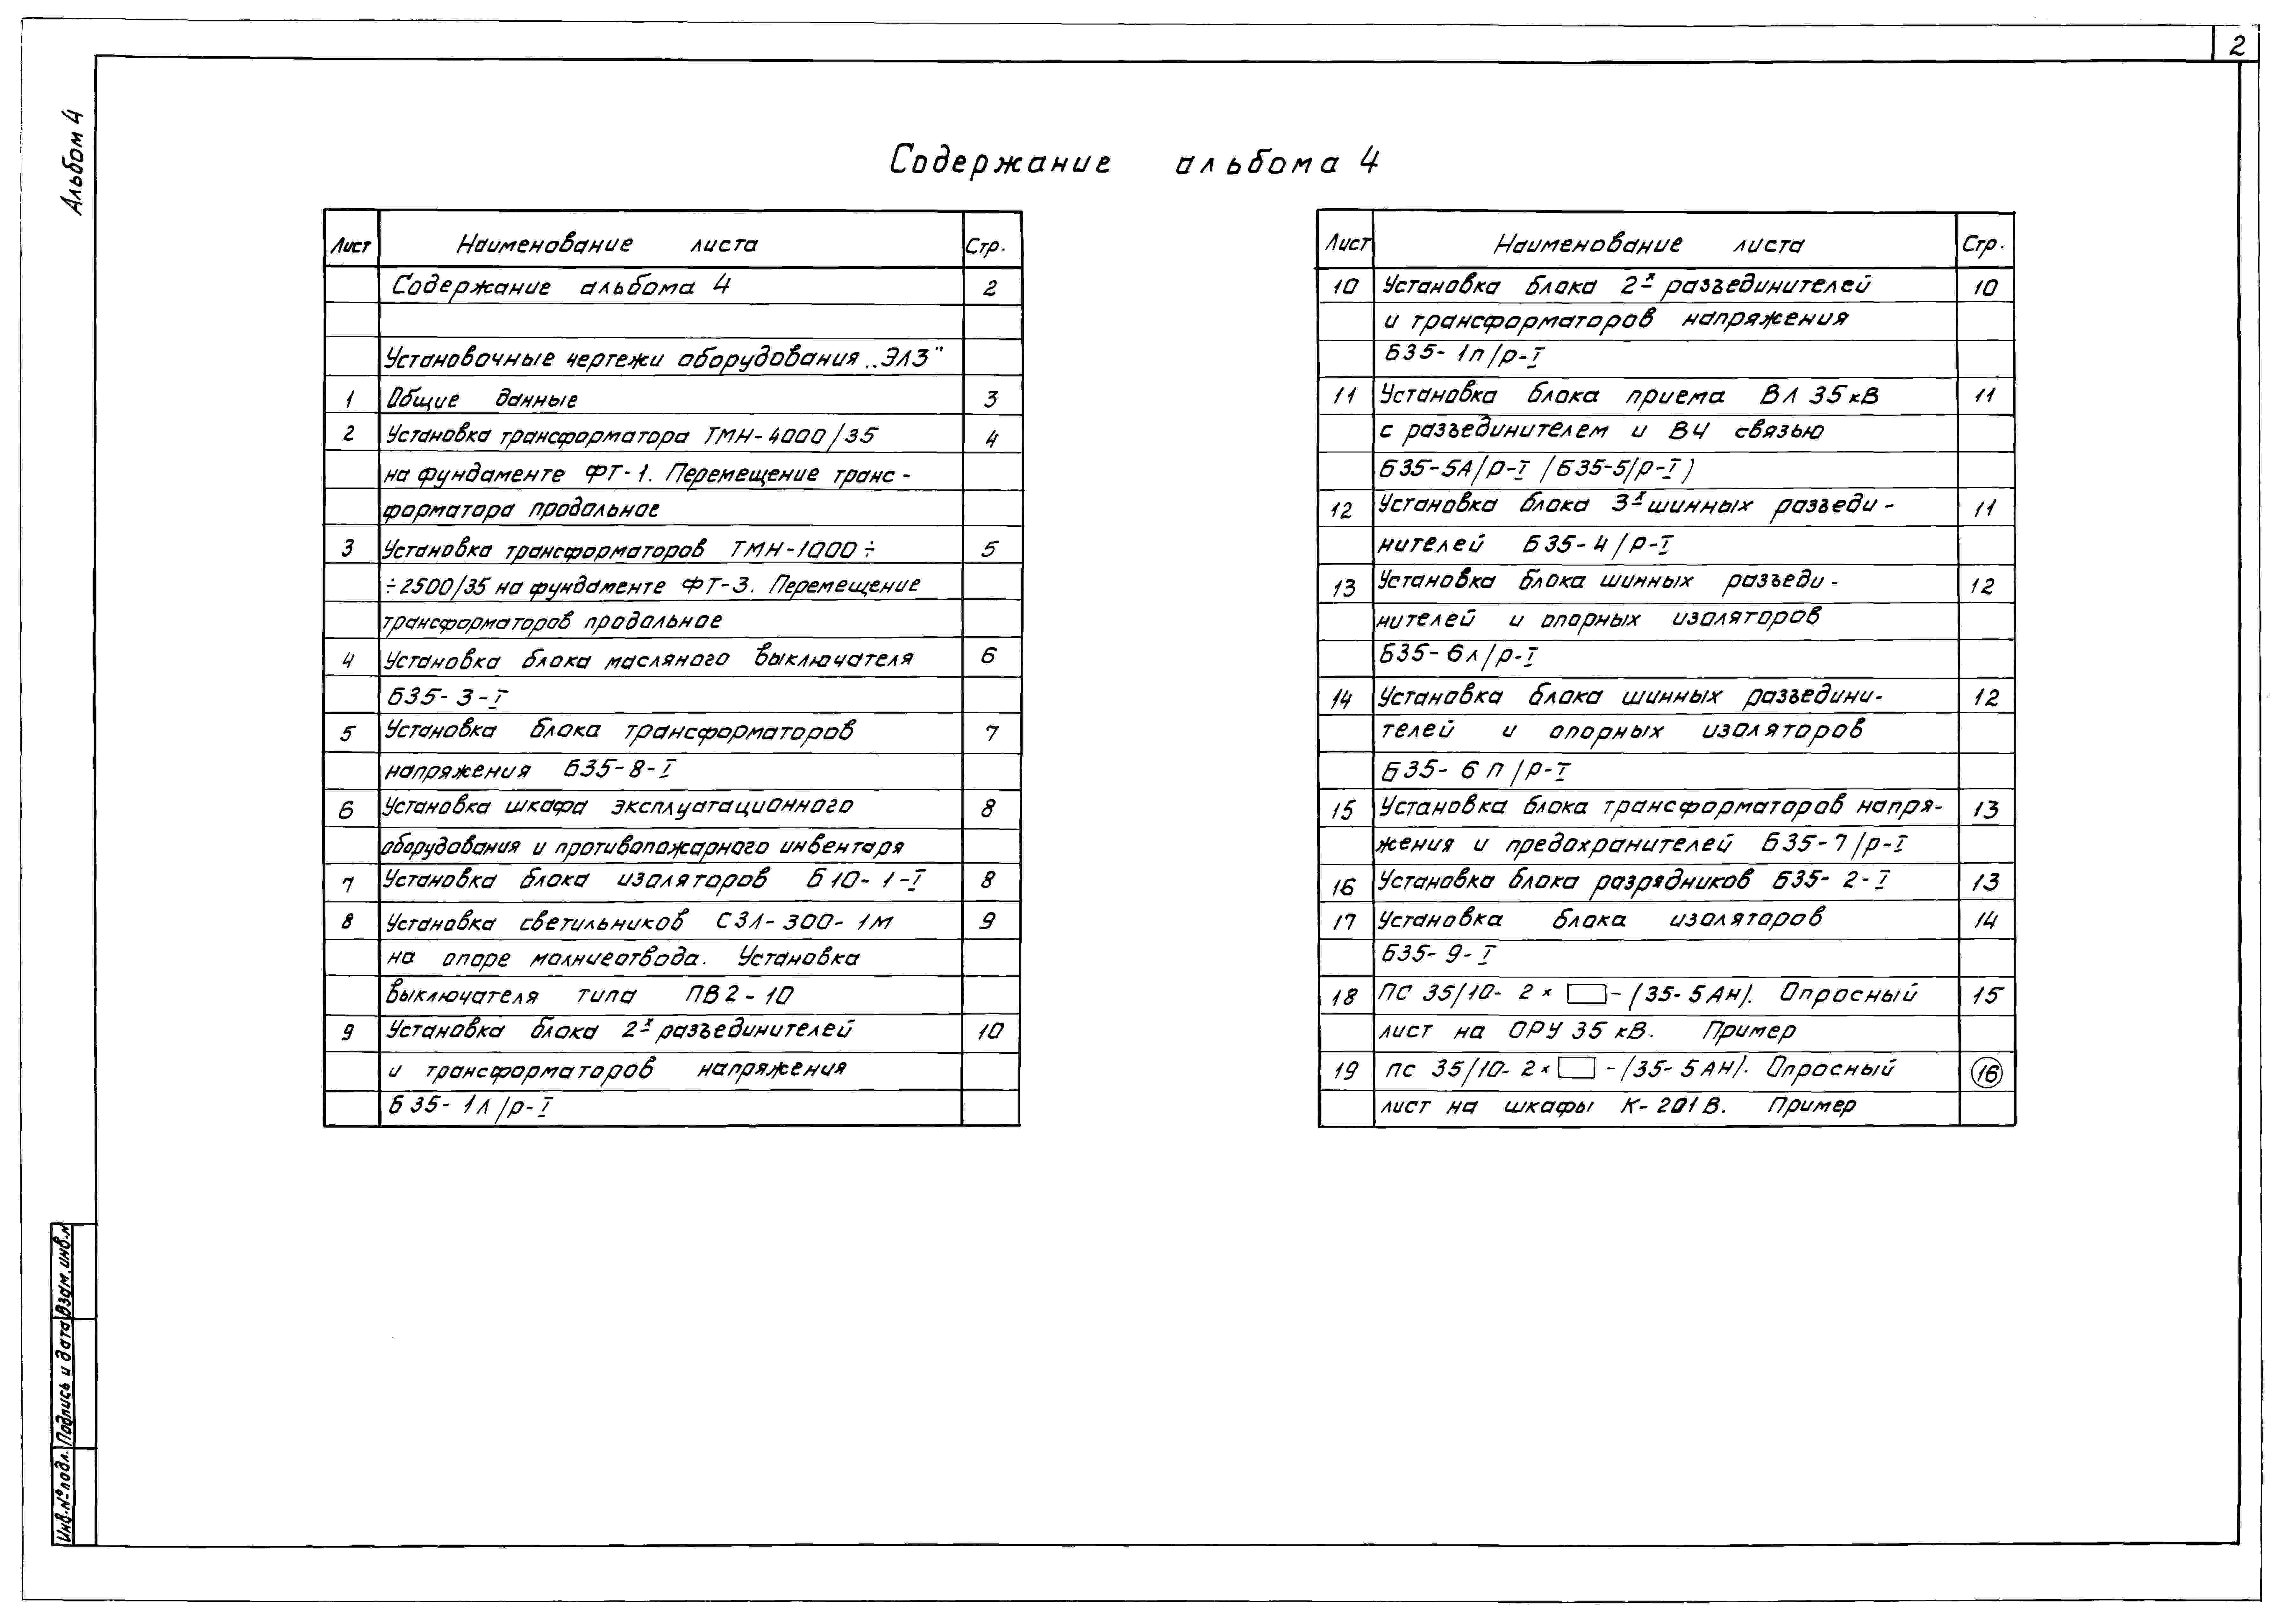 2
Альбом 4
Содержание альбома 4
Лист Наименование листа Стр.
Содержание альбома 4 2
Установочные чертежи оборудования „ЭЛ3"
1 Общие данные 3
2 Установка трансформатора ТМН-4000/35 4
на фундаменте ФТ-1. Перемещение транс-
форматора продольное
3 Установка трансформаторов ТМН-1000÷ 5
÷2500/35 на фундаменте ФТ-3. Перемещение
трансформаторов продольное
4 Установка блока масляного выключателя 6
Б35-3-I
5 Установка блока трансформаторов 7
напряжения Б35-8-I
6 Установка шкафа эксплуатационного 8
оборудования и противопожарного инвентаря
7 Установка блока изоляторов Б10-1-I 8
8 Установка светильников СЗЛ-300-1М 9
на опоре молниеотвода. Установка
выключателя типа ПВ2-10
9 Установка блока 2х разъединителей 10
и трансформаторов напряжения
Б35-1Л/р-I
Лист Наименование листа Стр.
10 Установка блока 2х разъединителей 10
и трансформаторов напряжения
Б35-1п/р-I
11 Установка блока приема ВЛ 35кВ 11
с разъединителем и ВЧ связью
Б35-5А/р-I (Б35-5/р-I)
12 Установка блока 3х шинных разъеди- 11
нителей Б35-4/р-I
13 Установка блока шинных разъеди- 12
нителей и опорных изоляторов
Б35-6л/р-I
14 Установка блока шинных разъедини- 12
телей и опорных изоляторов
Б35-6П/р-I
15 Установка блока трансформаторов напря- 13
жения и предохранителей Б35-7/р-I
16 Установка блока разрядников Б35-2-I 13
17 Установка блока изоляторов 14
Б35-9-I
18 ПС 35/10-2×□-(35-5АН). Опросный 15
лист на ОРУ 35 кВ. Пример
19 ПС 35/10-2×□-(35-5АН). Опросный 16
лист на шкафы К-201В. Пример
Инв.№подл. Подпись и дата Взам.инв.№